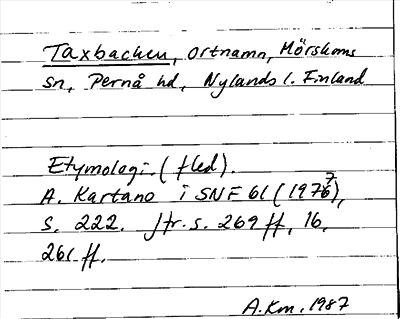 Taxbacken, ortnamn, Mörskoms
sn, Pernå hd, Nylands l. Finland
Etymologi. (fled).
A. Kartano i SNF 61 (1977),
s. 222. Jfr. s. 269 ff, 16,
261 ff.
A.Km. 1987